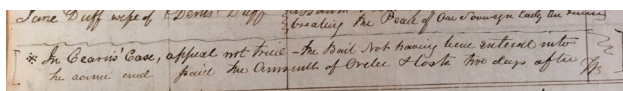 Jane Duff wife of Denis Duff
breaking the Peace of Our Sovereign Lady the Queen
* In Cearns' Case, appeal not tried - the Bail Not having been entered into
he came and paid the Amount of Order & Costs two days after